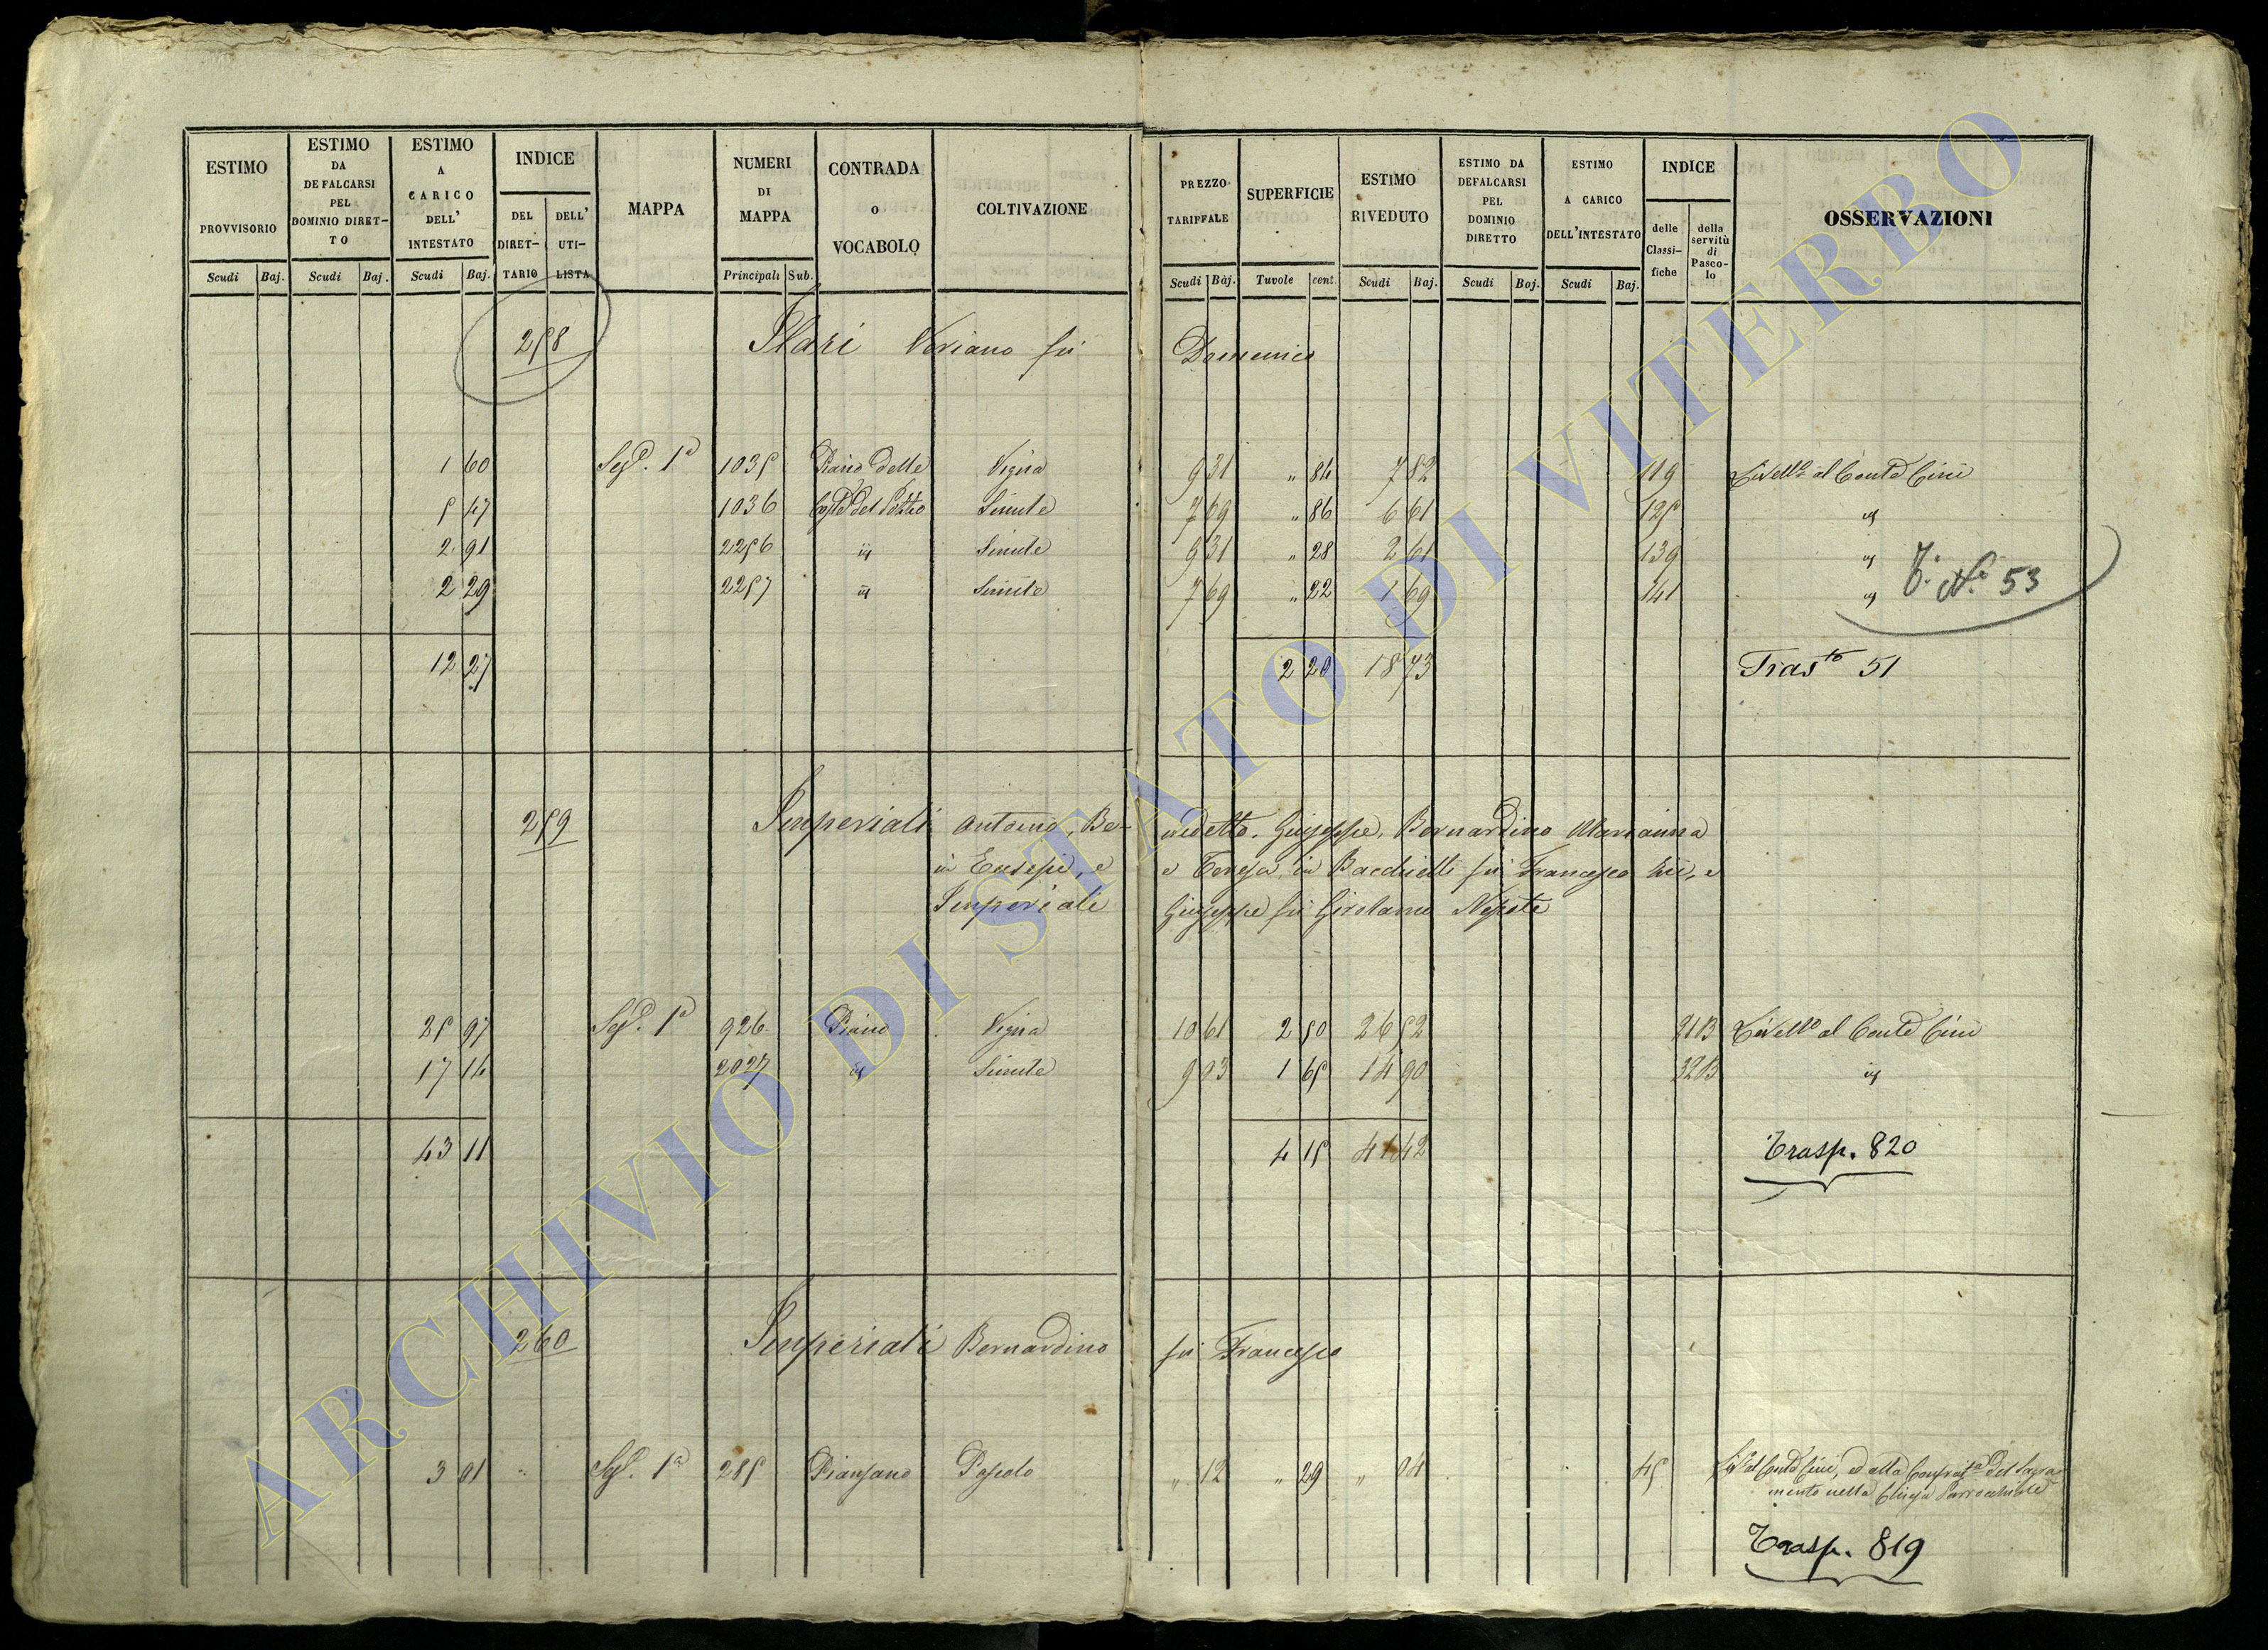 ESTIMO PROVVISORIO Scudi Baj. ESTIMO DA DEFALCARSI PEL DOMINIO DIRET-TO Scudi Baj. ESTIMO A CARICO DELL' INTESTATO Scudi Baj. INDICE DEL DIRET-TARIO DELL' UTI-LISTA MAPPA NUMERI DI MAPPA Principali Sub. CONTRADA O VOCABOLO COLTIVAZIONE
PREZZO TARIFFALE Scudi Baj. SUPERFICIE Tavole cent. ESTIMO RIVEDUTO Scudi Baj. ESTIMO DA DEFALCARSI PEL DOMINIO DIRETTO Scudi Boj. ESTIMO A CARICO DELL'INTESTATO Scudi Baj. INDICE delle Classi-fiche della servitù di Pasco-lo OSSERVAZIONI
258 Ilari fù Domenico
1 60 Sez. 1a 1035 Piano delle Vigna 9 31 " 84 7 82 119 Livello al Conte Cini
5 47 1036 Coste del Pozzo Simile 7 69 " 86 6 61 125 id
2 91 2256 id Simile 9 31 " 28 2 61 139 id
2 29 2257 id Simile 7 69 " 22 1 69 141 id V. N. 53
12 27 2 20 18 73 Trasto 51
259 Imperiali Antonio, Be- nedetto, Giuseppe, Bernardino Marianna
in Eusepi, e e Teresa in fù Francesco zii, e
Imperiali Giuseppe fù Girolamo Nipote
25 97 Sez. 1a 926 Piano Vigna 10 61 2 50 26 52 21B Livello al Conte Cini
17 14 2027 id Simile 9 03 1 65 14 90 32B id
43 11 4 15 41 42 Trasp. 820
260 Imperiali Bernardino fù Francesco
3 01 " Sez. 1a 285 Piansano Pascolo " 12 " 29 " 04 45 Livo al Conte Cini, ed alla Confrata del Sagra-
mento nella Chiesa Parrocchiale
Trasp. 819
ARCHIVIO DI STATO DI VITERBO